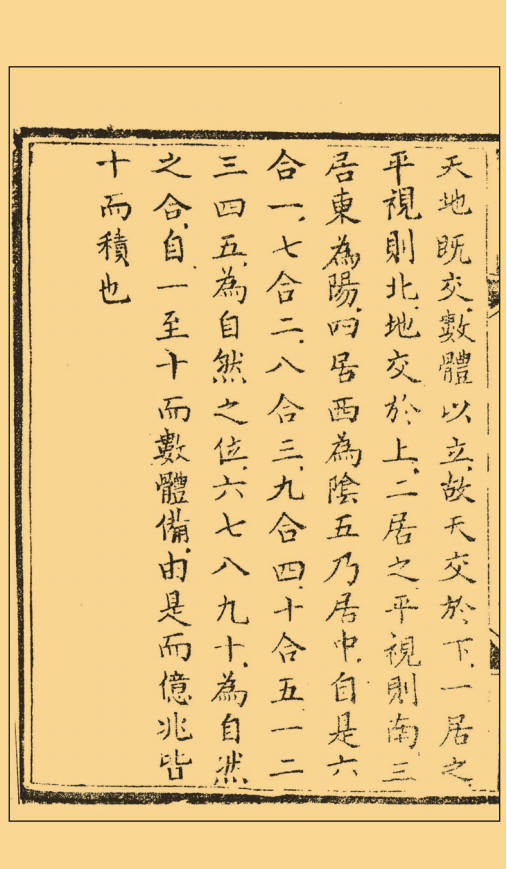 天地既交數體以立故天交於下一居之
平視則北地交於上二居之平視則南三
居東為陽四居西為陰五乃居中自是六
合一七合二八合三九合四十合五一二
三四五為自然之位六七八九十為自然
之合自一至十而數體備由是而億兆皆
十而積也